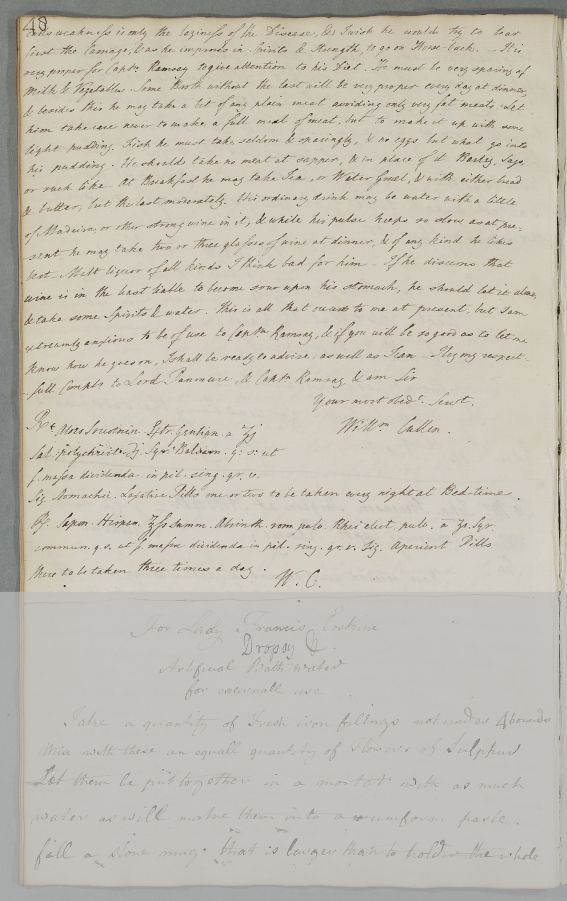 48
this weakness is only the laziness of the Disease, & I wish he would try to bear
first the Carriage, & as he improves in Spirits & Strength, to go on Horse-back. - It is
very proper for Captn Ramsay to give attention to his Diet. He must be very sparing of
Milk & Vegetables. Some Broth without the last will be very proper every day at dinner,
& besides this he may take a bit of any plain meat avoiding only very fat meats. Let
him take care never to make a full meal of meat, but to make it up with some
light pudding. Fish he must take seldom & sparingly, & no eggs but what go into
his pudding. He should take no meat at supper, & in place of it Barley, Sago
or such like. At Breakfast he may take Tea, or Water Gruel, & with either bread
& butter, but the last moderately. His ordinary drink may be water with a little
of Madeira, or other strong wine in it, & while his pulse keeps so slow as at pre-
sent he may take two or three glasses of wine at dinner, & of any kind he likes
best. Malt liquor of all kinds I think bad for him - If he discerns that
wine is in the least liable to become sour upon his stomach, he should let it alone,
& take some Spirits & water. This is all that occurs to me at present, but I am
extreamly anxious to be of use to Captn Ramsay, & if you will be so good as to let me
know how he goes on, I shall be ready to advise as well as I can - I beg my respect-
full Compts to Lord Panmure, & Captn Ramsay & am Sir
Your most Obedt. Servt.
Willm Cullen.
Rx Aloes Socotrin. Extr. Gentian. a ʒj
Sal. polychrist. ʒj Syr. Balsam. q. s. ut
f. massa dividenda in pil. sing. gr. v.
Sig. Stomachic. Laxative Pills one or two to be taken every night at Bed-time.
Rx. Sapon. Hispan. ʒfs summ. Absinth. rom. pulv. Rhei elect. pulv. a ʒj. Syr.
commun. q. s. ut f. massa dividenda in pil. sing. gr. v. Sig. Aperient Pills
three to be taken three times a day.
W. C.
For Lady Francis Erskine
Dropsy
Artificial Bath water
for externall use
Take a quantity of Fresh iron filings not under 4 pounds
Mix with these an equall quantity of Flowers of Sulphur
Let them be put together in a mortar with as much
water as will make them into a uniform paste.
fill a stone mug that is larger than to hold the whole